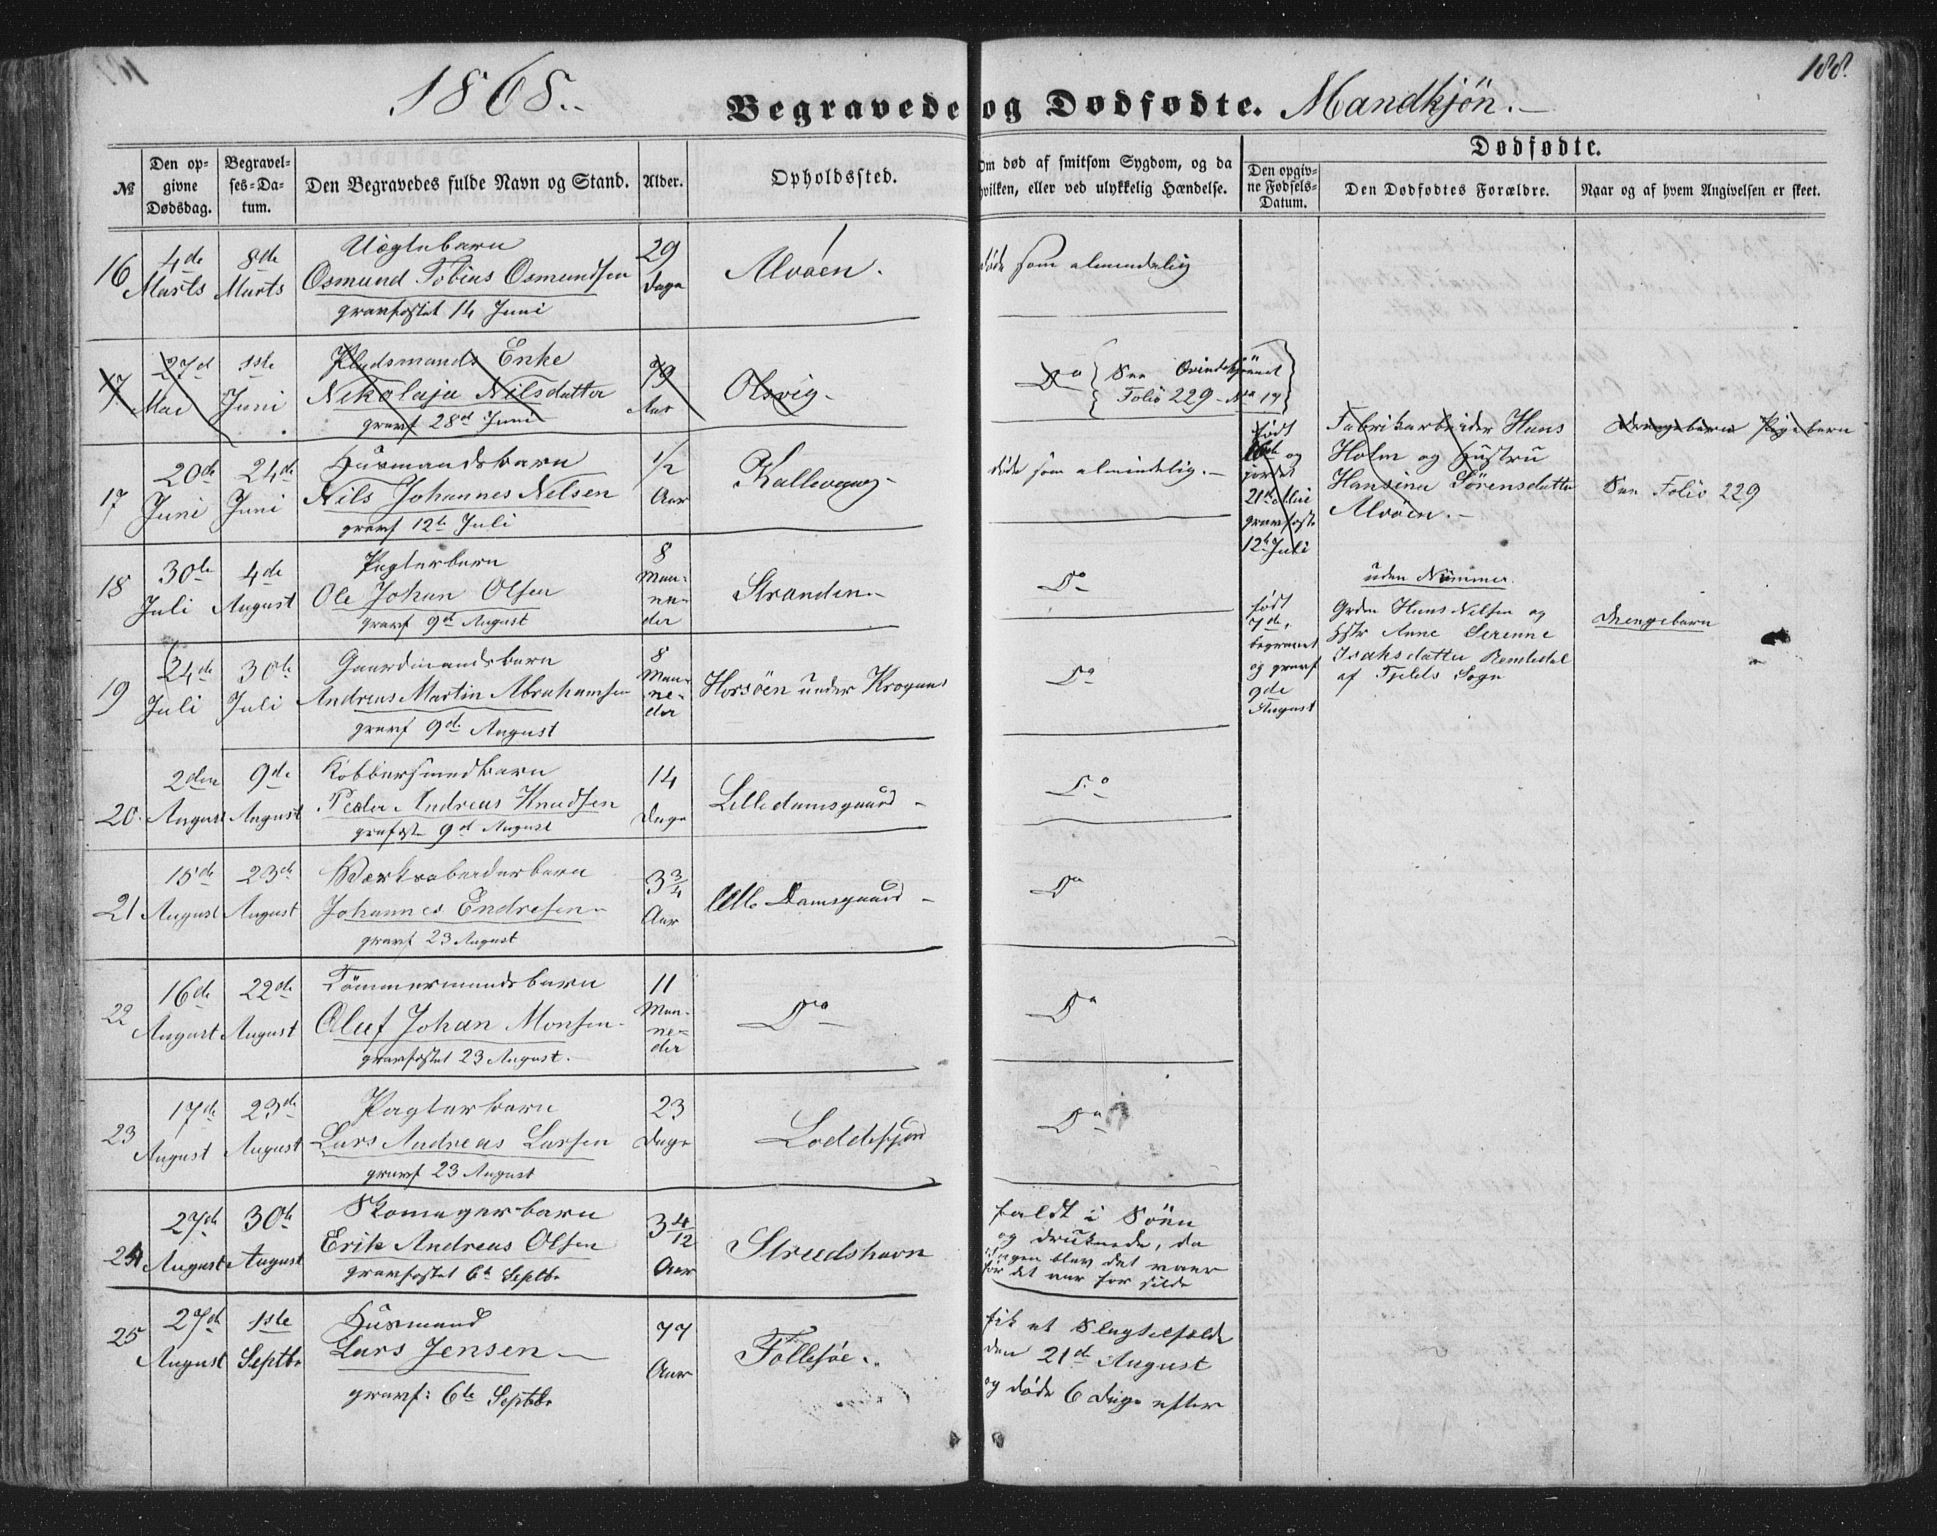 1868.
Begravede og Dødfødte. Mandkjøn.
188.
No
Den opgivne Dødsdag.
Begravelses-Datum.
Den Begravedes fulde Navn og Stand.
Alder.
Opholdssted.
Om død af smitsom Sygdom, og da hvilken, eller ved ulykkelig Hændelse.
Dødfødte.
Den opgivne Fødsels-Datum.
Den Dødfødtes Forældre.
Naar og af hvem Angivelsen er skeet.
16
4de Marts
8de Marts
Uægtebarn
Osmund Tobias Osmundsen
gravfæstet 14 Juni
29 Dage
Alvøen.
døde som almindelig
17
27d Mai
1ste Juni
Enke
Nikolaja Nilsdatter
gravf 28d Juni
79 Aar
Olsvig.
Do
See Qvindekjønnet
Folio 229 - No 19
17
20de Juni
24de Juni
Huusmandsbarn
Nils Johannes Nelsen
gravf 12te Juli
1/2 Aar
døde som almindelig.
født
og
jordet
21de Mai
gravfæste
12te Juli
Fabrikarbeider Hans
Holm og Hustru
Hansine Sørensdatter
Alvøen.
Drengebarn Pigebarn
See Folio 229
18
30te Juli
4de August
Pagterbarn
Ole Johan Olsen
gravf 9de August
8 Maaneder
Stranden
Do
uden Nummer.
født
7de,
begravet
og gravf
9de
August
Grdm Hans Nilsen og
Hstr Anne Serenne
Isaksdatter
af Fjelds Sogn
Drengebarn
19
24de Juli
30te Juli
Gaardmandsbarn
Andreas Martin Abrahamsen
gravf 9de August
8 Maaneder
Horsøen under
Do
20.
2den August
9de August
Kobbersmedbarn
Peder Andreas Knudsen
gravfæst 9d August
14 Dage
Lille damsgaard
Do
21
15de August
23de August
Værksabeiderbarn
Johannes Endresen
gravf 23 August
3 3/4 Aar
Lille Damsgaard
Do
22
16de August
22de August
Tømmermandsbarn
Oluf Johan Monsen
gravfæstet 23 August.
11 Maaneder
Do
Do
23
17de August
23de August
Pagterbarn
Lars Andreas Larsen
gravf 23 August
23 Dage
Do
24
27de August
30te August
Skomagerbarn
Erik Andreas Olsen
gravfæstet 6te Septbr
3 4/12 Aar
Strudshavn
faldt i Søen
og druknede, da
Ingen blev det vaer
før det var for silde
25
27de August
1ste Septbr
Huusmand
Lars Jensen
gravf: 6te Septbr
77 Aar
Follesøe.
fik et Slagtilfælde
den 21de August
og døde 6 Dage efter